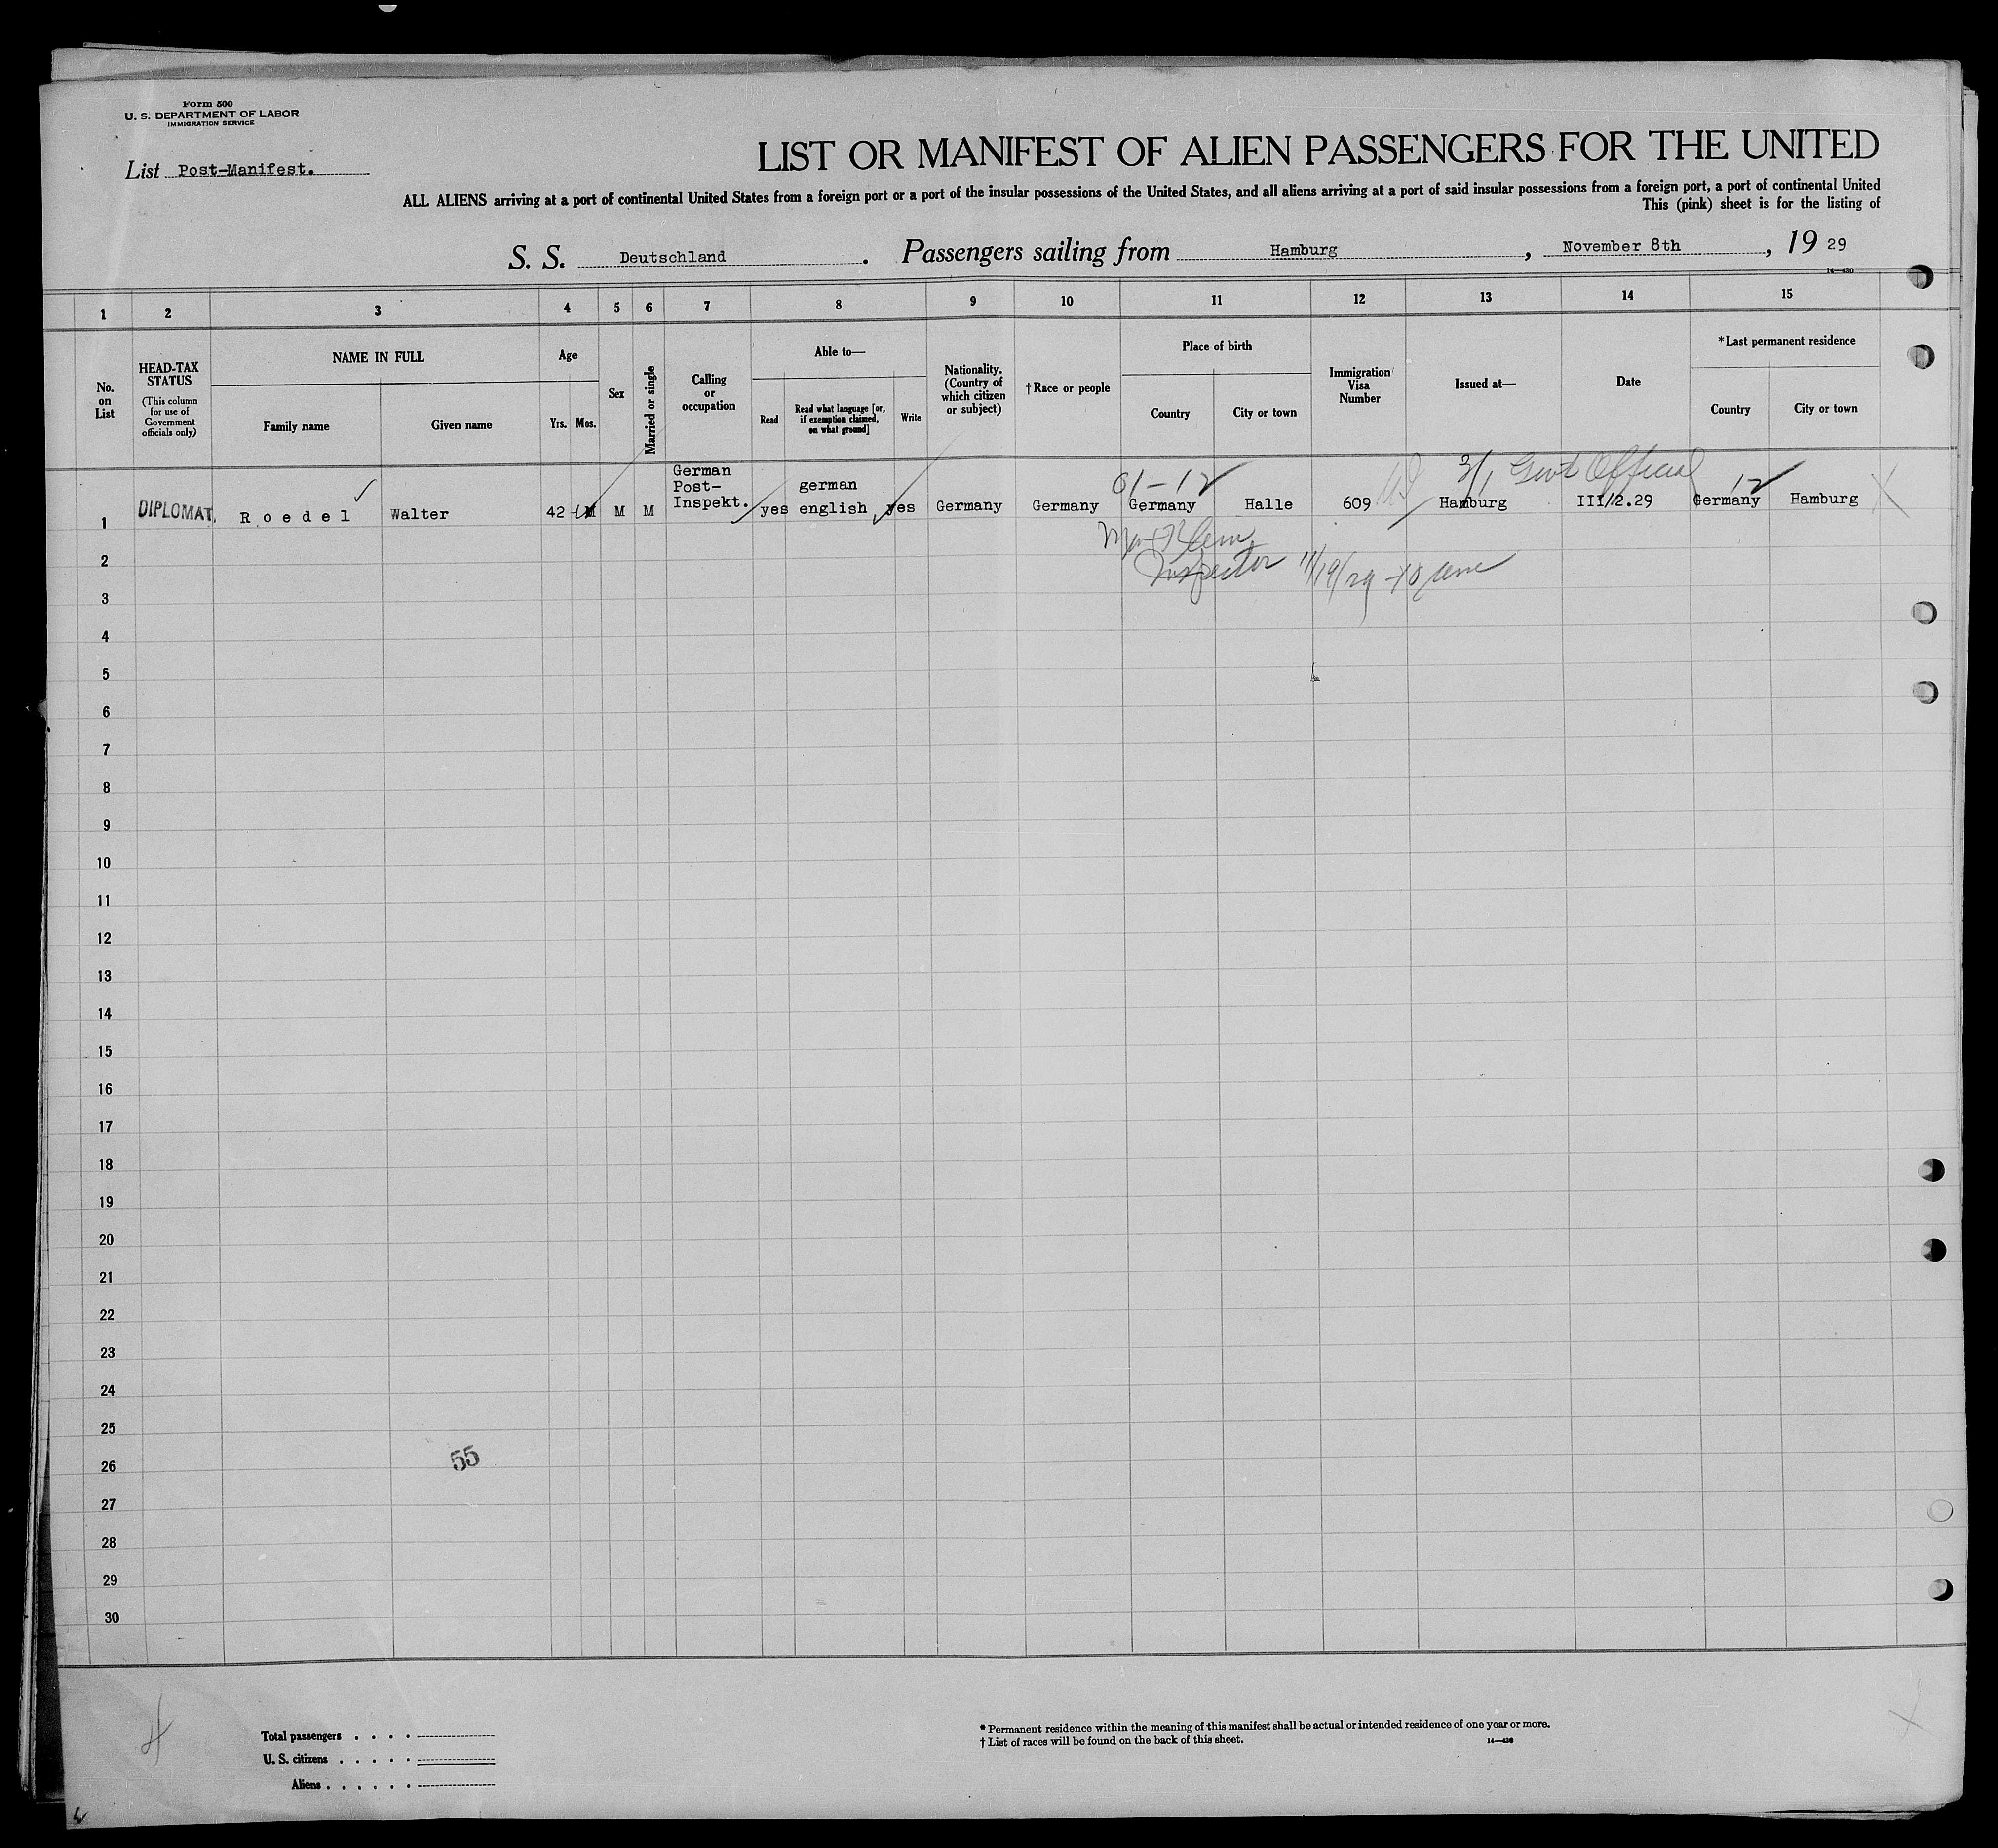 Form 500
U. S. DEPARTMENT OF LABOR
IMMIGRATION SERVICE
List Post-Manifest.
LIST OR MANIFEST OF ALIEN PASSENGERS FOR THE UNITED
ALL ALIENS arriving at a port of continental United States from a foreign port or a port of the insular possessions of the United States, and all aliens arriving at a port of said insular possessions from a foreign port, a port of continental United
This (pink) sheet is for the listing of
S. S. Deutschland. Passengers sailing from Hamburg, November 8th, 19 29
1 2 3 4 5 6 7 8 9 10 11 12 13 14 15
No. on List
HEAD-TAX STATUS
(This column for use of Government officials only)
NAME IN FULL
Family name Given name
Age
Yrs. Mos.
Sex
Married or single
Calling or occupation
Able to—
Read
Read what language [or, if exemption claimed, on what ground]
Write
Nationality. (Country of which citizen or subject)
†Race or people
Place of birth
Country City or town
Immigration Visa Number
Issued at—
Date
*Last permanent residence
Country City or town
61-12 3/1 Govt Official 12
1 DIPLOMAT. Roedel Walter 42 M M German Post-Inspekt. yes german english yes Germany Germany Germany Halle 609 Hamburg III/2.29 Germany Hamburg
Inspector 11/19/29
2
3
4
5
6
7
8
9
10
11
12
13
14
15
16
17
18
19
20
21
22
23
24
25
55
26
27
28
29
30
Total passengers . . . .
U. S. citizens . . . . .
Aliens . . . . . .
* Permanent residence within the meaning of this manifest shall be actual or intended residence of one year or more.
† List of races will be found on the back of this sheet.